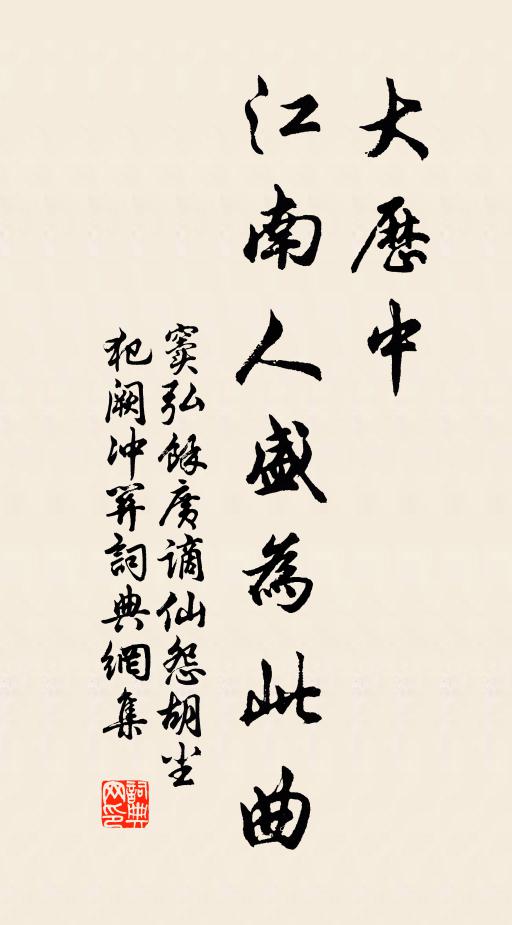 大歷中
江南人盛為此曲
竇弘餘廣謫仙怨胡尘
犯阙冲関詞典網集
詞典
网印